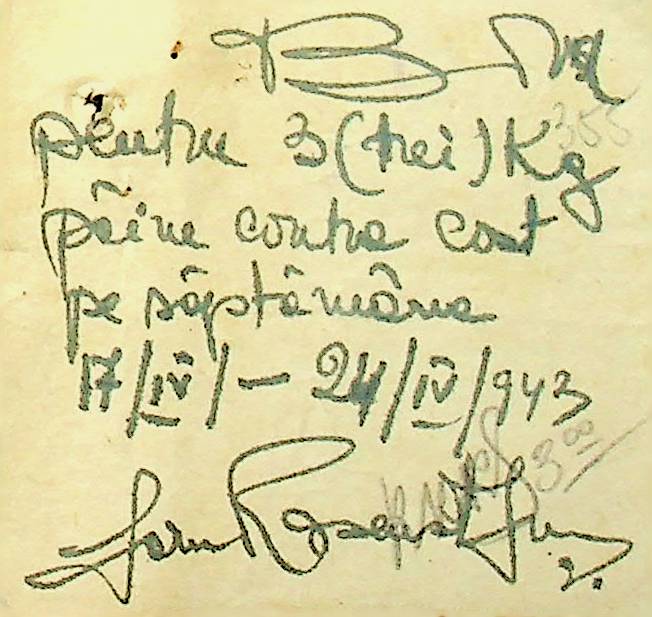 355
pentru 3 (trei) Kg
pâine contra cost
pe săptămâna
17/IV/ – 24/IV/943
3⁰⁰